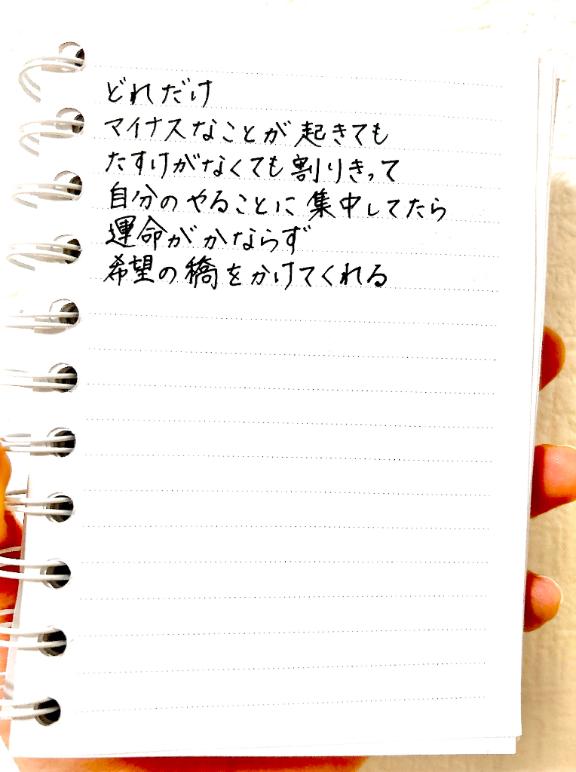 どれだけ
マイナスなことが起きても
たすけがなくても割りきって
自分のやることに集中してたら
運命がかならず
希望の橋をかけてくれる